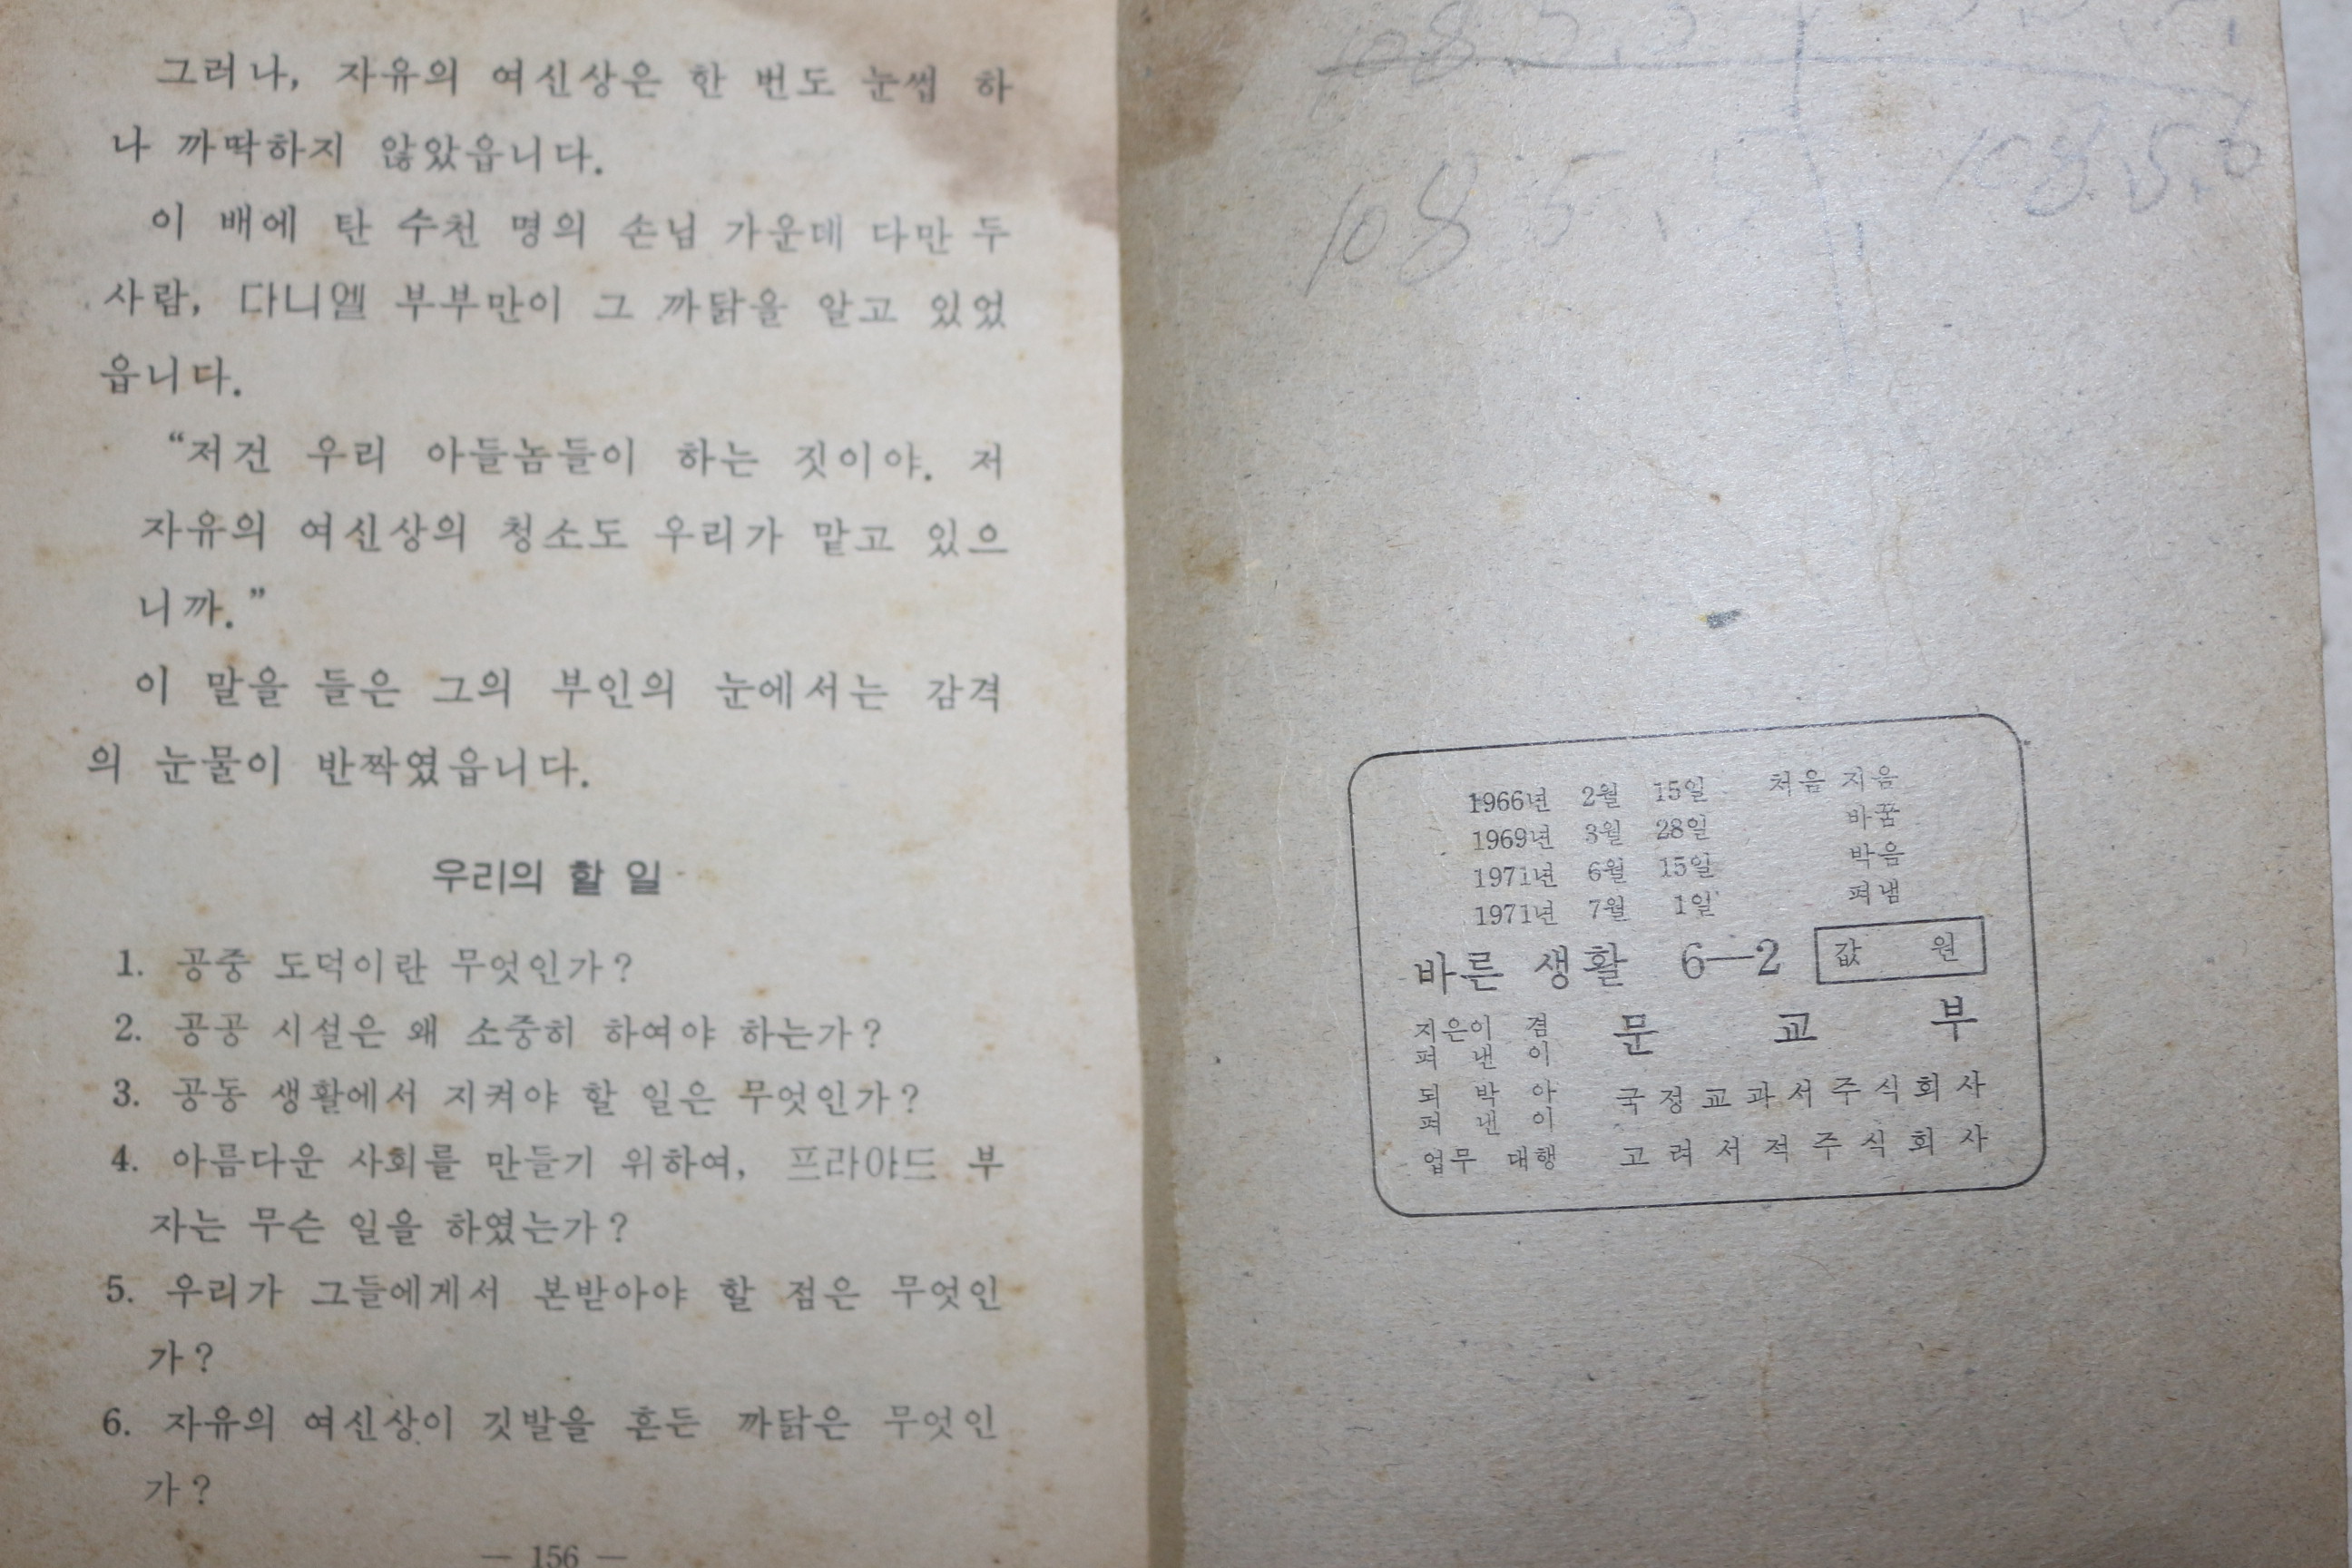 그러나, 자유의 여신상은 한 번도 눈썹 하
나 까딱하지 않았읍니다.
이 배에 탄 수천 명의 손님 가운데 다만 두
사람, 다니엘 부부만이 그 까닭을 알고 있었
읍니다.
“저건 우리 아들놈들이 하는 짓이야. 저
자유의 여신상의 청소도 우리가 맡고 있으
니까.”
이 말을 들은 그의 부인의 눈에서는 감격
의 눈물이 반짝였읍니다.
우리의 할 일
1. 공중 도덕이란 무엇인가?
2. 공공 시설은 왜 소중히 하여야 하는가?
3. 공동 생활에서 지켜야 할 일은 무엇인가?
4. 아름다운 사회를 만들기 위하여, 프라야드 부
자는 무슨 일을 하였는가?
5. 우리가 그들에게서 본받아야 할 점은 무엇인
가?
6. 자유의 여신상이 깃발을 흔든 까닭은 무엇인
가?
— 156 —
108.5.6
1966년 2월 15일 처음 지음
1969년 3월 28일 바꿈
1971년 6월 15일 박음
1971년 7월 1일 펴냄
바른 생활 6—2 값 원
지은이 겸
펴 낸 이
문 교 부
되 박 아
펴 낸 이
국정교과서주식회사
업무 대행 고려서적주식회사